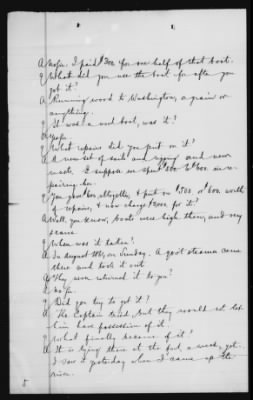 A No sir. I paid $300 for one half of that boat.
Q What did you use the boat for after you
got it?
A Running wood to Washington, a grain or
anything.
Q It was a wood boat, was it?
A Yes sir.
Q What repairs did you put on it?
A A new set of sails and rigging and new
masts. I suppose we spent $500 to $600 in re-
pairing her.
Q You gave $600 altogether, & put on $500 or $600 worth
of repairs, & now charge $2000 for it?
A Well, you know, boats were high then, and very
scarce.
Q When was it taken?
A In August 1861, on Sunday. A gov't steamer came
there and took it out.
Q They never returned it to you?
A No sir.
Q Did you try to get it?
A The Captain tried but they would not let
him have possession of it.
Q What finally became of it?
A It is lying there at the fort, a wreck, yet.
I saw it yesterday when I came up the
river.